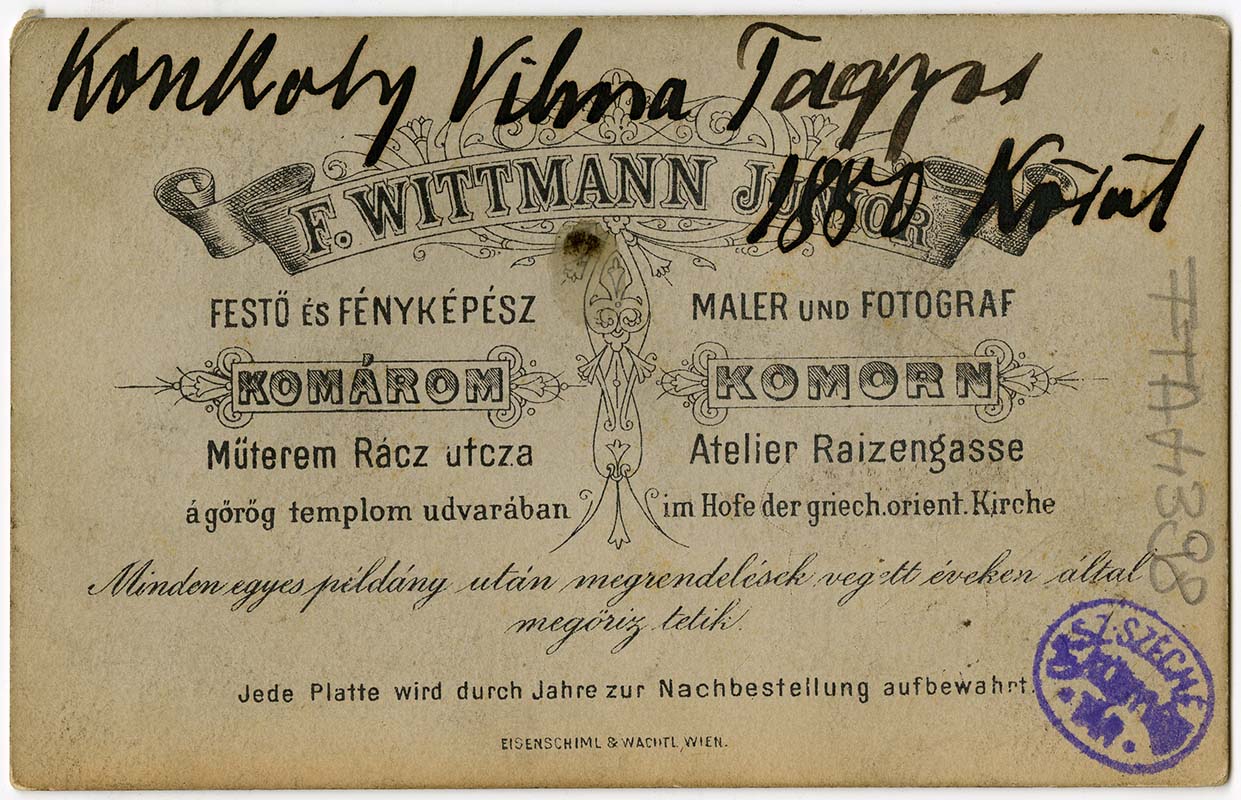 Konkoly Vilma Tagyos
1880 Körül
F. WITTMANN JUNIOR
FESTŐ ÉS FÉNYKÉPÉSZ
MALER UND FOTOGRAF
KOMÁROM
KOMORN
Műterem Rácz utcza
Atelier Raizengasse
á görög templom udvarában
im Hofe der griech. orient. Kirche
Minden egyes példány után megrendelések vegett éveken által
megőriz tetik.
Jede Platte wird durch Jahre zur Nachbestellung aufbewahrt.
EISENSCHIML & WACHTL, WIEN.
4398
SZ. SZÉCHE